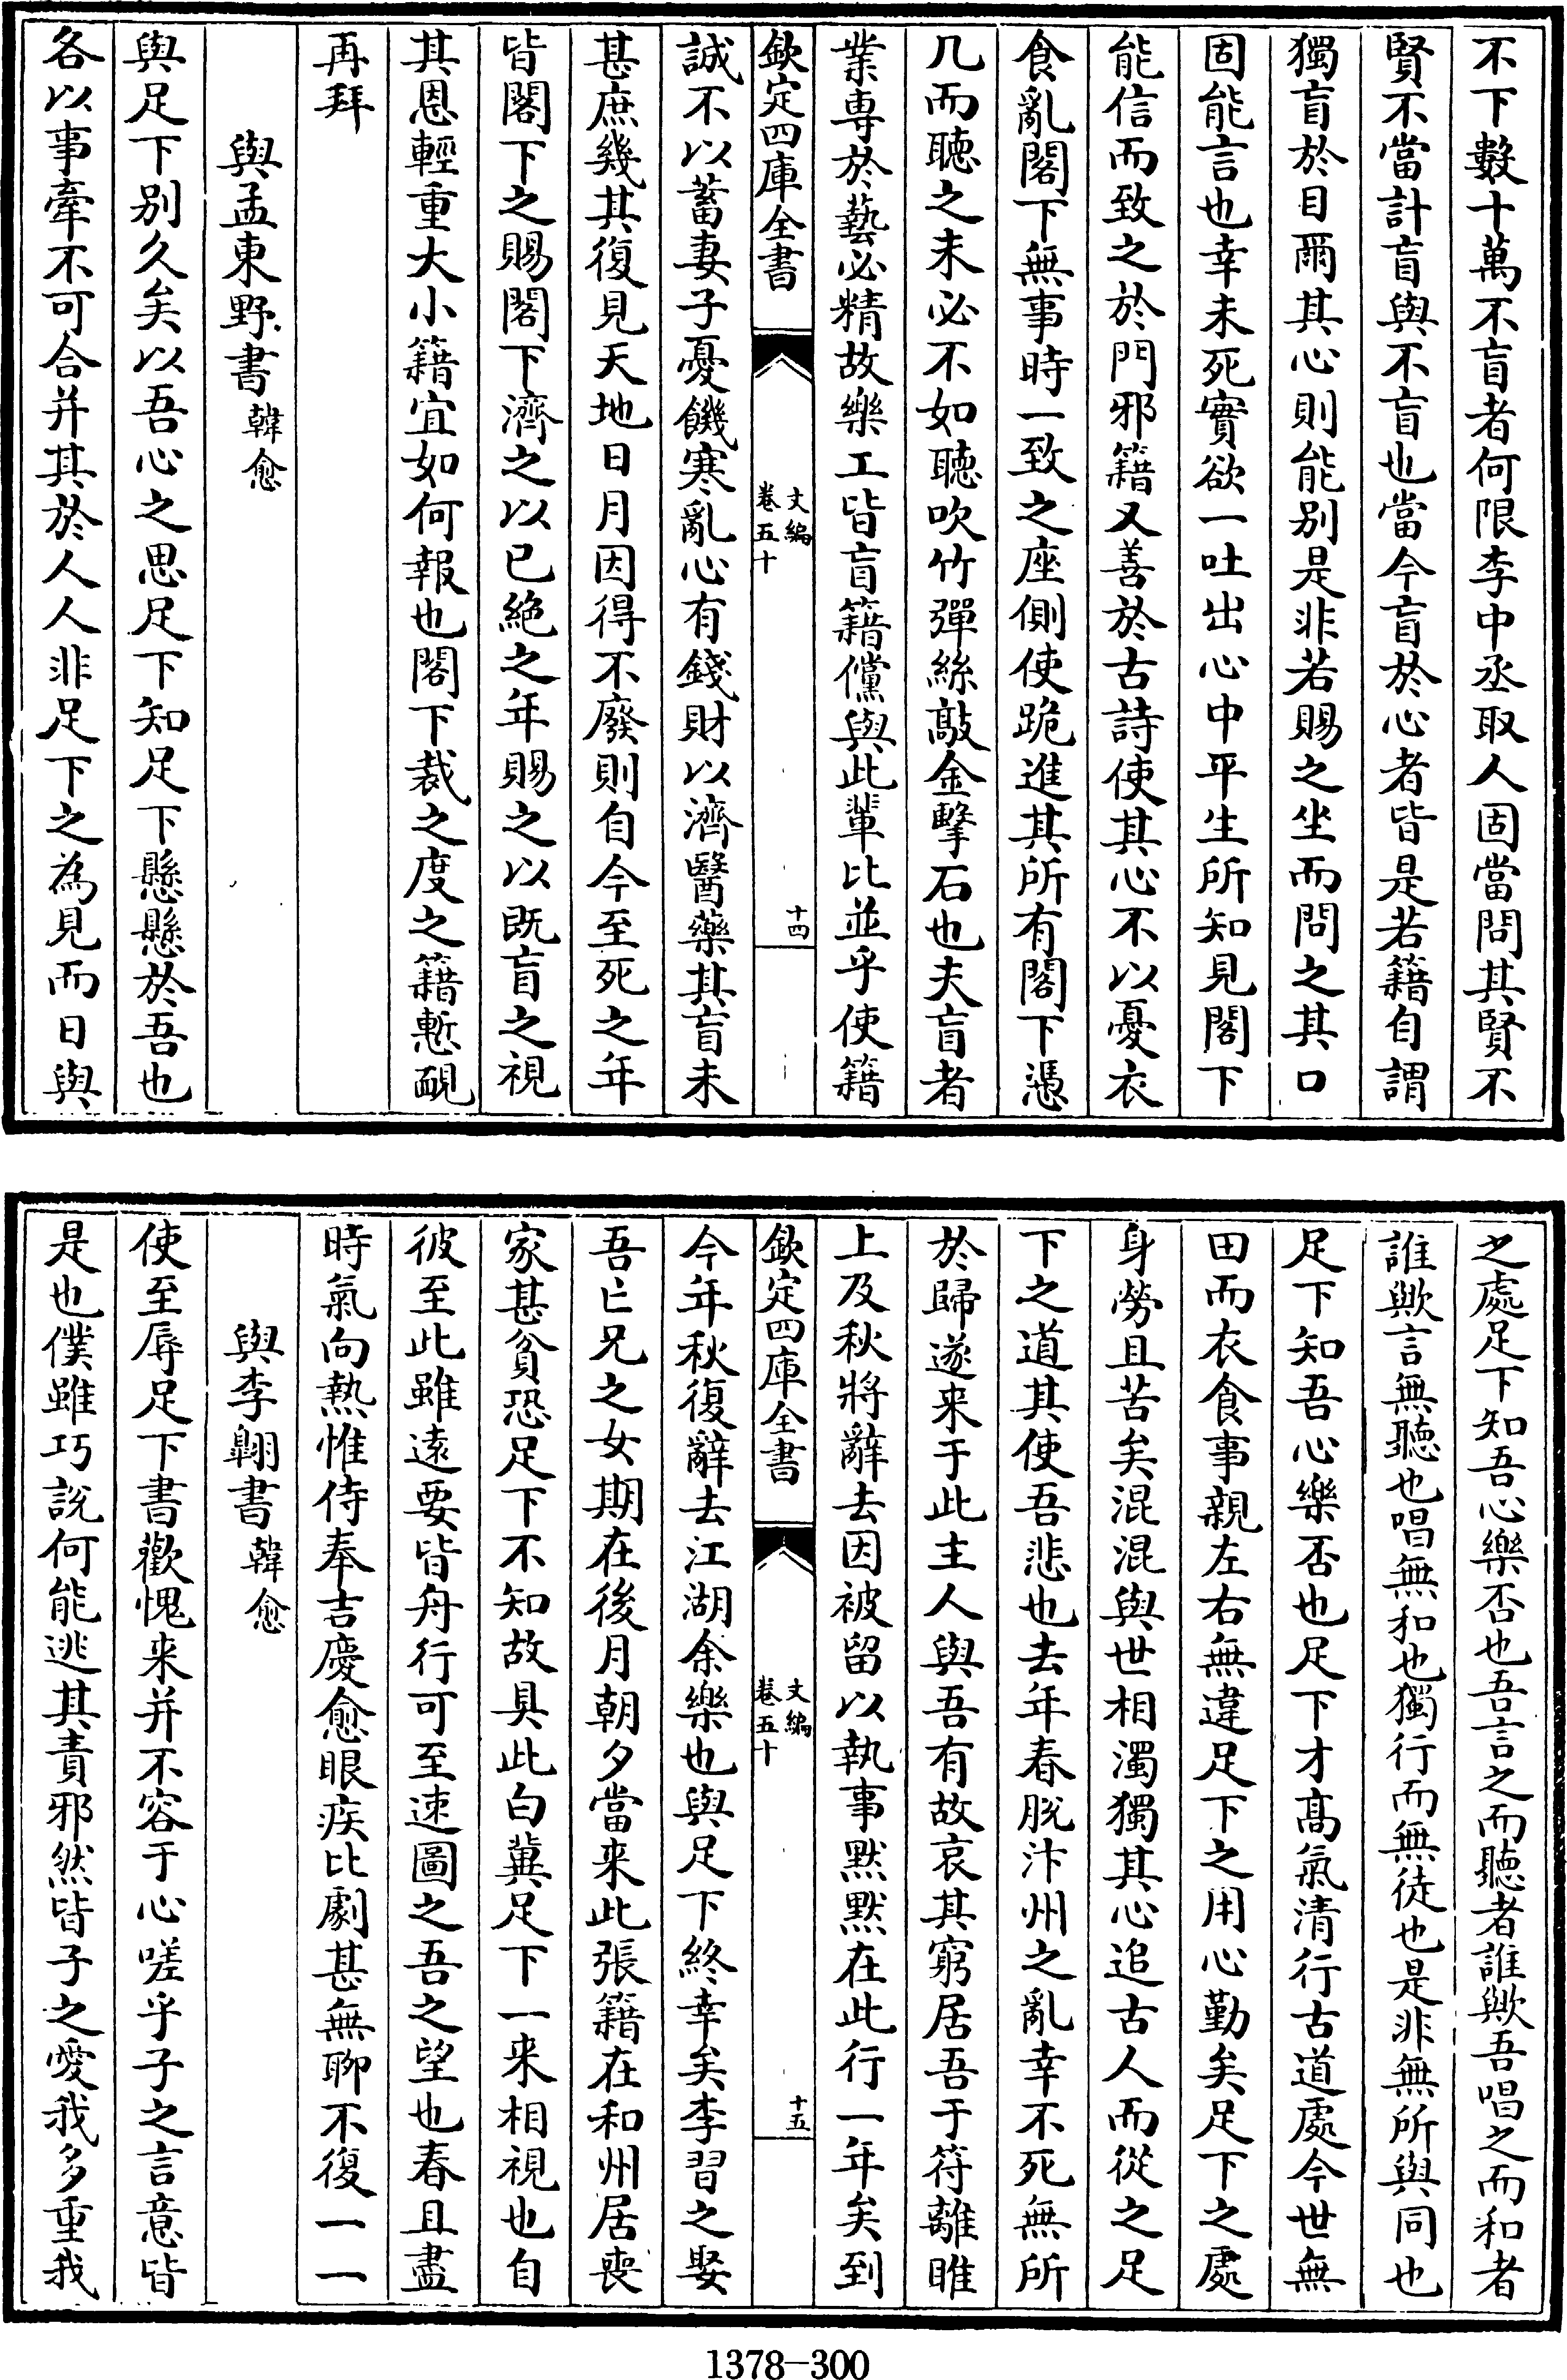 不下數十萬不盲者何限李中丞取人固當問其賢不
賢不當計盲與不盲也當今盲於心者皆是若籍自謂
獨盲於目爾其心則能别是非若賜之坐而問之其口
固能言也幸未死實欲一吐出心中平生所知見閣下
能信而致之於門邪籍又善於古詩使其心不以憂衣
食亂閣下無事時一致之座側使跪進其所有閣下憑
几而聽之未必不如聽吹竹彈絲敲金擊石也夫盲者
業専於藝必精故樂工皆盲籍儻與此輩比並乎使籍
欽定四庫全書
文編
卷五十
十四
誠不以蓄妻子憂饑寒亂心有錢財以濟醫藥其盲未
甚庶幾其復見天地日月因得不廢則自今至死之年
皆閣下之賜閣下濟之以已絶之年賜之以既盲之視
其恩輕重大小籍宜如何報也閣下裁之度之籍慙靦
再拜
與孟東野書韓愈
與足下别久矣以吾心之思足下知足下懸懸於吾也
各以事牽不可合并其於人人非足下之為見而日與
之處足下知吾心樂否也吾言之而聽者誰歟吾唱之而和者
誰歟言無聽也唱無和也獨行而無徒也是非無所與同也
足下知吾心樂否也足下才髙氣清行古道處今世無
田而衣食事親左右無違足下之用心勤矣足下之處
身勞且苦矣混混與世相濁獨其心追古人而從之足
下之道其使吾悲也去年春脱汴州之亂幸不死無所
於歸遂来于此主人與吾有故哀其窮居吾于符離睢
上及秋將辭去因被留以執事黙黙在此行一年矣到
欽定四庫全書
文編
卷五十
十五
今年秋復辭去江湖余樂也與足下終幸矣李習之娶
吾亡兄之女期在後月朝夕當来此張籍在和州居喪
家甚貧恐足下不知故具此白冀足下一来相視也自
彼至此雖逺要皆舟行可至速圖之吾之望也春且盡
時氣向熱惟侍奉吉慶愈眼疾比劇甚無聊不復一一
與李翺書韓愈
使至辱足下書歡愧来并不容于心嗟乎子之言意皆
是也僕雖巧説何能逃其責邪然皆子之愛我多重我
1378-300